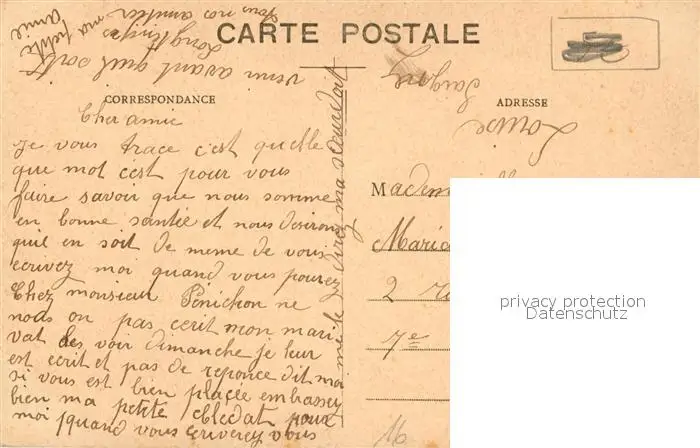 CARTE POSTALE
CORRESPONDANCE
Cher amie
Je vous trace c'est quelle
que mot c'est pour vous
faire savoir que nous somme
en bonne santée et nous desirons
qu'il en soit de meme de vous
ecrivez moi quand vous pourez
Chez monsieur Pénichon ne
nous on pas ecrit mon mari
vat les voir dimanche je leur
est ecrit et pas de reponce dit moi
si vous est bien placée embrassez
bien ma petite pour
moi quand vous ecriverez vous
me le direz ma
venu avant quel sorte
Longtemps
tous nos amitiés
ma petite
amie
ADRESSE
Louise
Madem
Marie
2 r
7e
16
privacy protection
Datenschutz